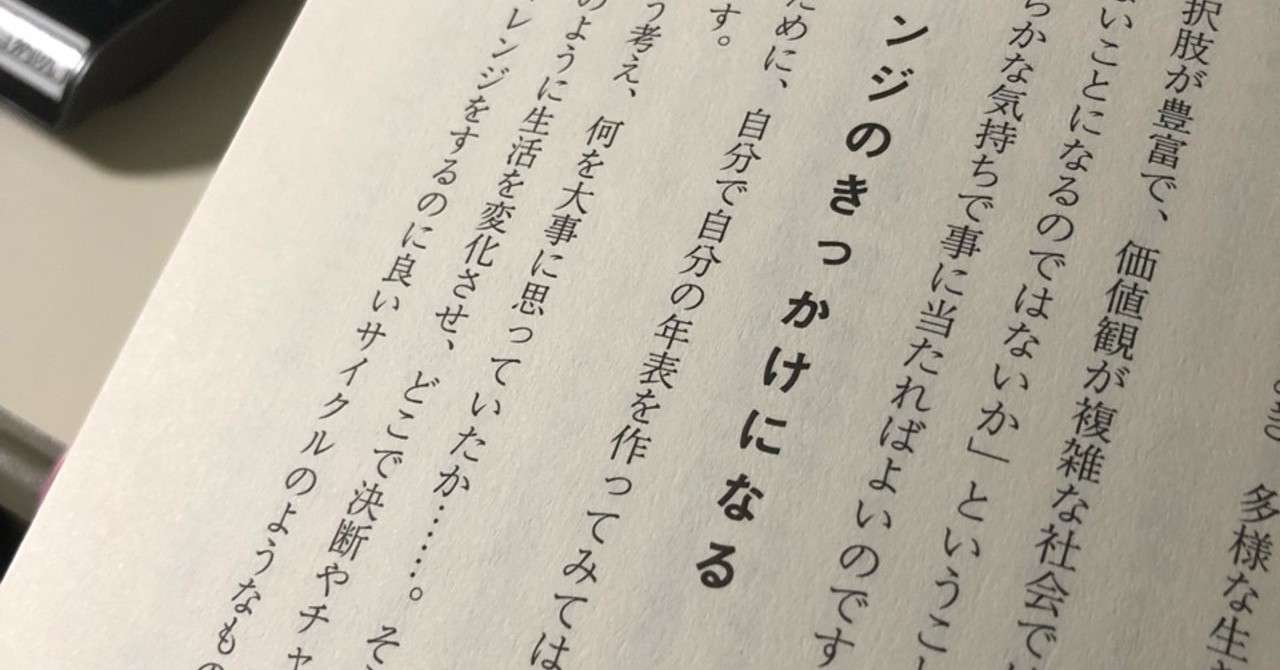 多様な生
択肢が豊富で、価値観が複雑な社会で
ないことになるのではないか」というこ
らかな気持ちで事に当たればよいのです
ンジのきっかけになる
ために、自分で自分の年表を作ってみては
す。
う考え、何を大事に思っていたか……。そ
のように生活を変化させ、どこで決断やチャ
レンジをするのに良いサイクルのようなもの